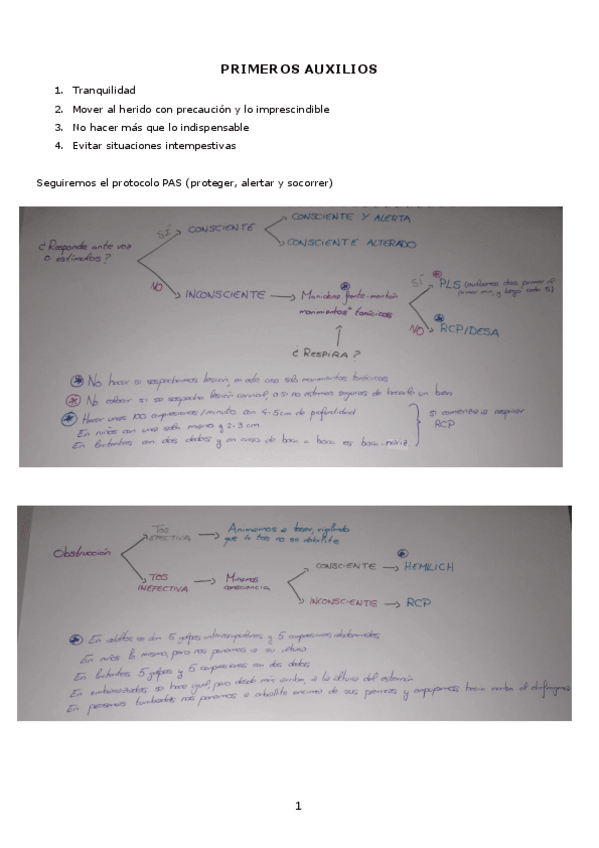 PRIMEROS AUXILIOS
1. Tranquilidad
2. Mover al herido con precaución y lo imprescindible
3. No hacer más que lo indispensable
4. Evitar situaciones intempestivas
Seguiremos el protocolo PAS (proteger, alertar y socorrer)
CONSCIENTE Y ALERTA
SÍ CONSCIENTE
CONSCIENTE ALTERADO
¿Responde ante voz
o estímulos?
NO INCONSCIENTE
Maniobra frente-mentón
movimientos torácicos
¿RESPIRA?
SÍ PLS
NO RCP/DESA
No hacer si sospechamos lesión, en este caso solo movimientos torácicos
No colocar si se sospecha lesión cervical, o si no estamos seguros de hacerlo bien
Hacer unas 100 compresiones/minuto con 4-5cm de profundidad
En niños con una sola mano y 2-3 cm
En lactantes con dos dedos y en caso de boca a boca es boca-nariz
RCP
Obstrucción
TOS EFECTIVA
Animamos a toser, vigilando
que la tos no se debilite
TOS INEFECTIVA
Miramos
consciencia
CONSCIENTE
HEMLICH
INCONSCIENTE
RCP
En adultos se dan 5 golpes interescapulares y 5 compresiones abdominales
En niños lo mismo, pero nos ponemos a su altura
En lactantes 5 golpes y 5 compresiones con dos dedos
En embarazadas se hace igual, pero desde más arriba, a la altura del esternón
En personas tumbadas nos ponemos a caballito encima de sus piernas y empujamos hacia arriba el diafragma
1